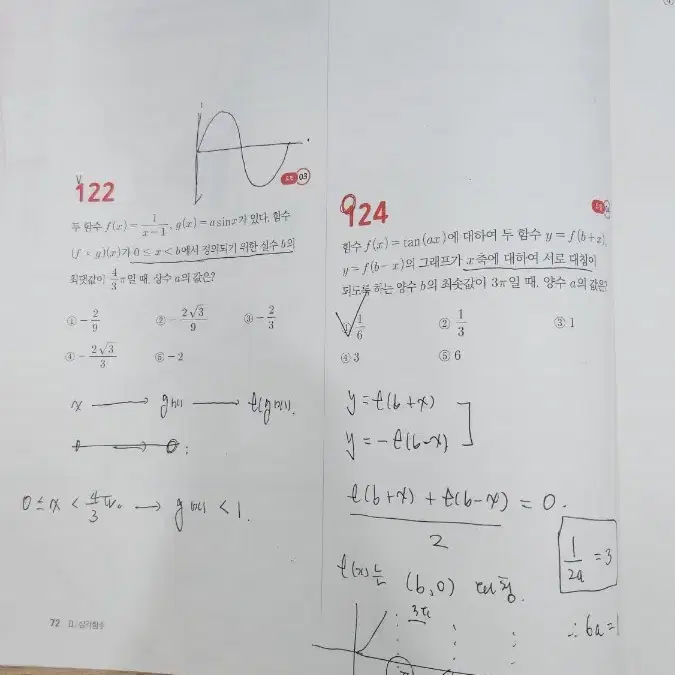 122
03
두 함수 f(x)=1/(x-1), g(x)=a sin x가 있다. 함수
(f∘g)(x)가 0≤x<b에서 정의되기 위한 실수 b의
최댓값이 4/3π일 때, 상수 a의 값은?
① -2/9 ② -2√3/9 ③ -2/3
④ -2√3/3 ⑤ -2
x → g(x) → f(g(x)).
0≤x<4/3π. → g(x)<1.
72 Ⅱ. 삼각함수
124
함수 f(x)=tan(ax)에 대하여 두 함수 y=f(b+x),
y=f(b-x)의 그래프가 x축에 대하여 서로 대칭이
되도록 하는 양수 b의 최솟값이 3π일 때, 양수 a의 값은?
① 1/6 ② 1/3 ③ 1
④ 3 ⑤ 6
y=f(b+x)
y=-f(b-x)
(f(b+x)+f(b-x))/2=0.
f(x)는 (b,0) 대칭.
1/2a=3
3π
∴6a=1